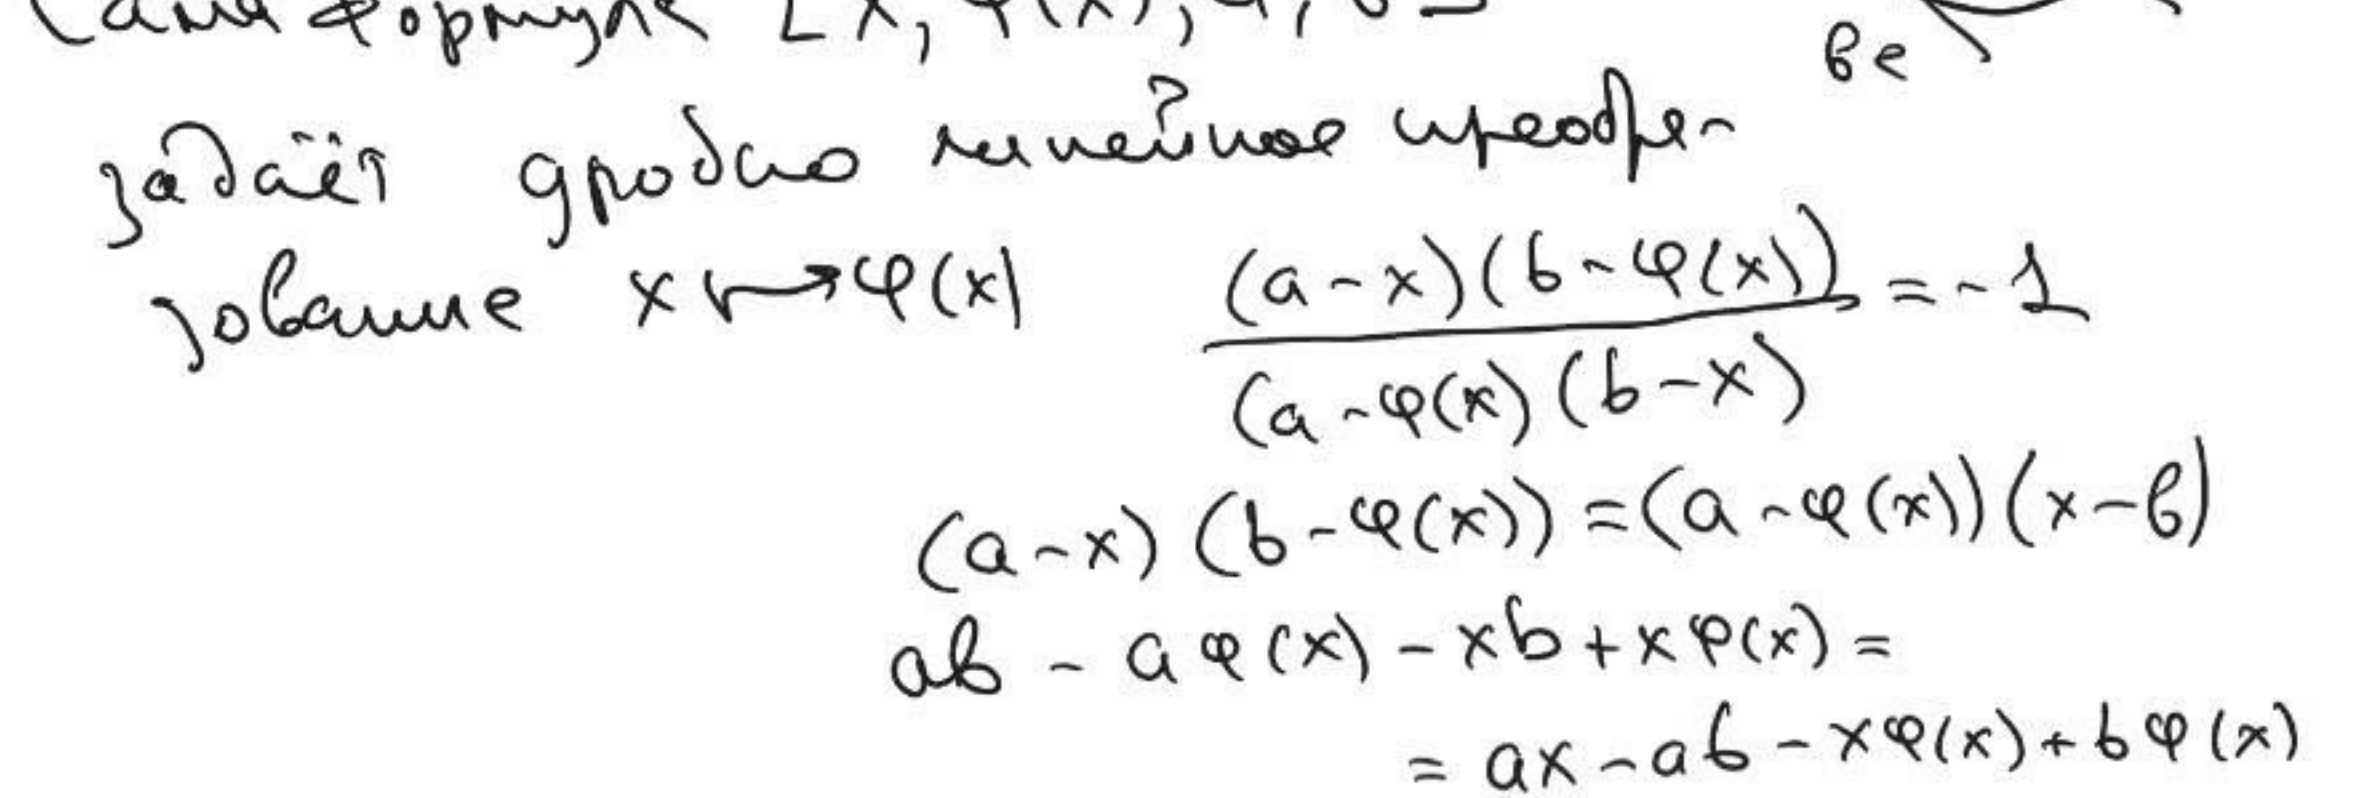 Сама формула [x, φ(x), a, b]
ве
задаёт дробно линейное преобра-
зование x ↦ φ(x)
(a-x)(b-φ(x)) / (a-φ(x)(b-x) = -1
(a-x)(b-φ(x))=(a-φ(x))(x-b)
ab - aφ(x) - xb + xφ(x) =
= ax - ab - xφ(x) + bφ(x)